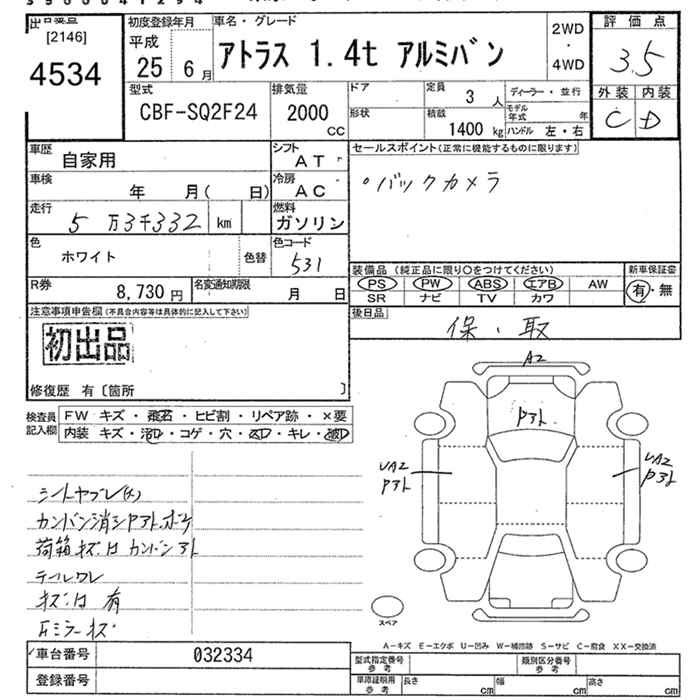 出品番号
[2146]
4534
初度登録年月
平成
25 6月
車名・グレード
アトラス 1.4t アルミバン
2WD
・
4WD
評価点
3.5
外装 内装
C D
型式
CBF-SQ2F24
排気量
2000
CC
ドア
形状
定員
3 人
積載
1400 kg
ディーラー・並行
モデル年式 年
ハンドル 左・右
車歴
自家用
シフト
AT
車検
年 月( 日)
冷房
AC
走行
5万3千332 km
燃料
ガソリン
色
ホワイト
色替
色コード
531
R券
8,730 円
名変通知期限
月 日
セールスポイント(正常に機能するものに限ります)
・バックカメラ
装備品 (純正品に限り○をつけてください)
新車保証書
PS PW ABS エアB AW
SR ナビ TV カワ
有・無
後日品
保、取
注意事項申告欄(不具合内容等は具体的に記入して下さい)
初出品
修復歴 有〔箇所 〕
検査員記入欄
FW キズ・飛石・ヒビ割・リペア跡・×要
内装 キズ・汚D・コゲ・穴・凹D・キレ・破D
シートヤブレ(大)
カンバン消シPアト.ボケ
荷箱キズ凹カンバンアト
テールワレ
キズ凹有
左ミラーキズ
A2
Pアト
UA2
Pアト
UA2
Pアト
スペア
A−キズ E−エクボ U−凹み W−補修跡 S−サビ C−腐食 XX−交換済
車台番号
032334
登録番号
型式指定番号
参考
類別区分番号
参考
車庫証明用
参考
長さ cm
幅 cm
高さ cm